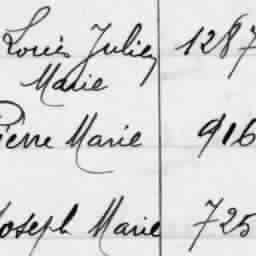 Louis Julien 1287
Marie
Pierre Marie 916
Joseph Marie 725